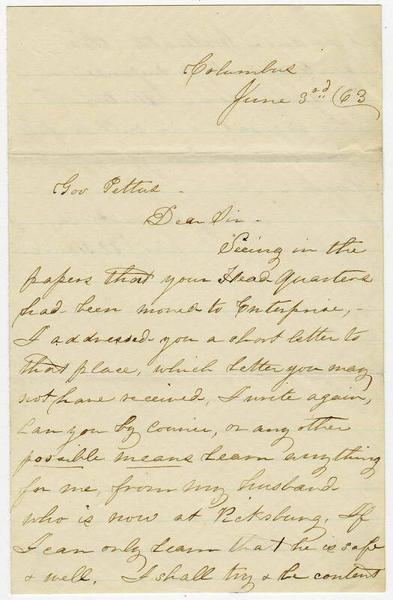 Columbus
June 3rd /63
Gov Pettus -
Dear Sir -
Seeing in the
papers that your Head Quarters
had been moved to Enterprise, -
I addressed you a short letter to
that place, which letter you may
not have received, I write again,
Can you by courier, or any other
possible means learn anything
for me, from my husband
who is now at Vicksburg. If
I can only learn that he is safe
& well, I shall try & be content